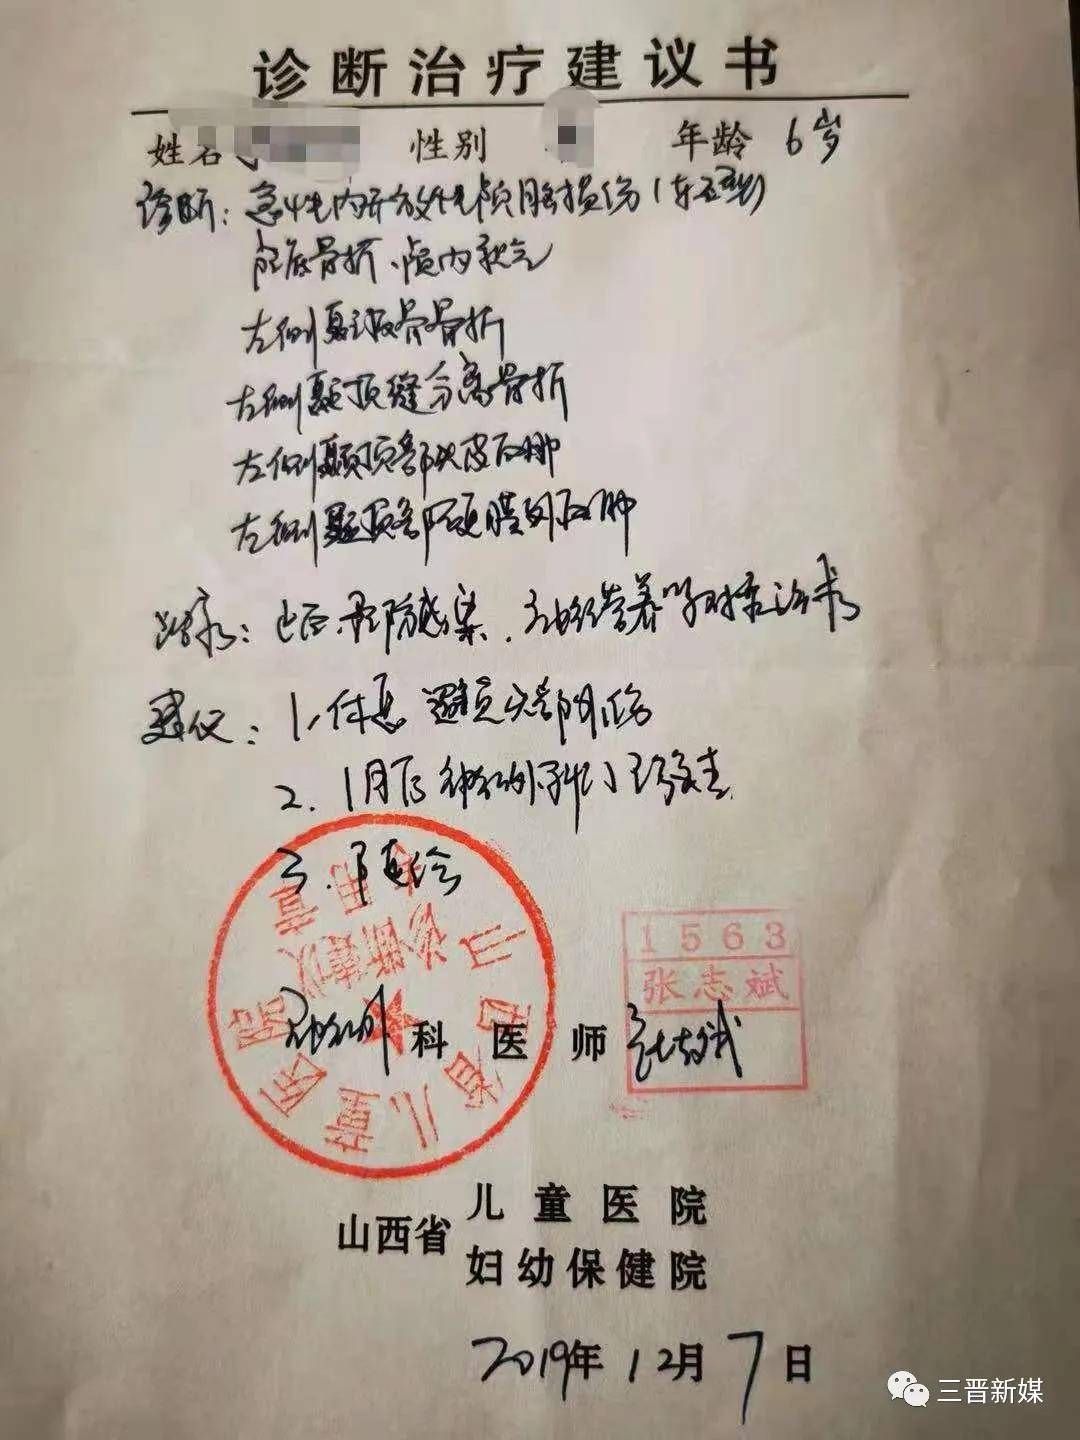 诊断治疗建议书
姓名 性别 年龄 6岁
诊断：急性内开放性颅脑损伤（车祸型）
颅底骨折、颅内积气
左侧颞骨骨折
左侧颞顶缝分离骨折
左侧颞顶部头皮血肿
左侧颞顶部硬膜外血肿
治疗：止血、预防感染、神经营养等对症治疗
建议：1、休息 避免头部外伤
2. 1月后神经外科门诊复查
3. 随诊
1563
张志斌
神经外科医师 张志斌
山西省儿童医院
诊断建议专用章
山西省 儿童医院
妇幼保健院
2019年12月7日
三晋新媒